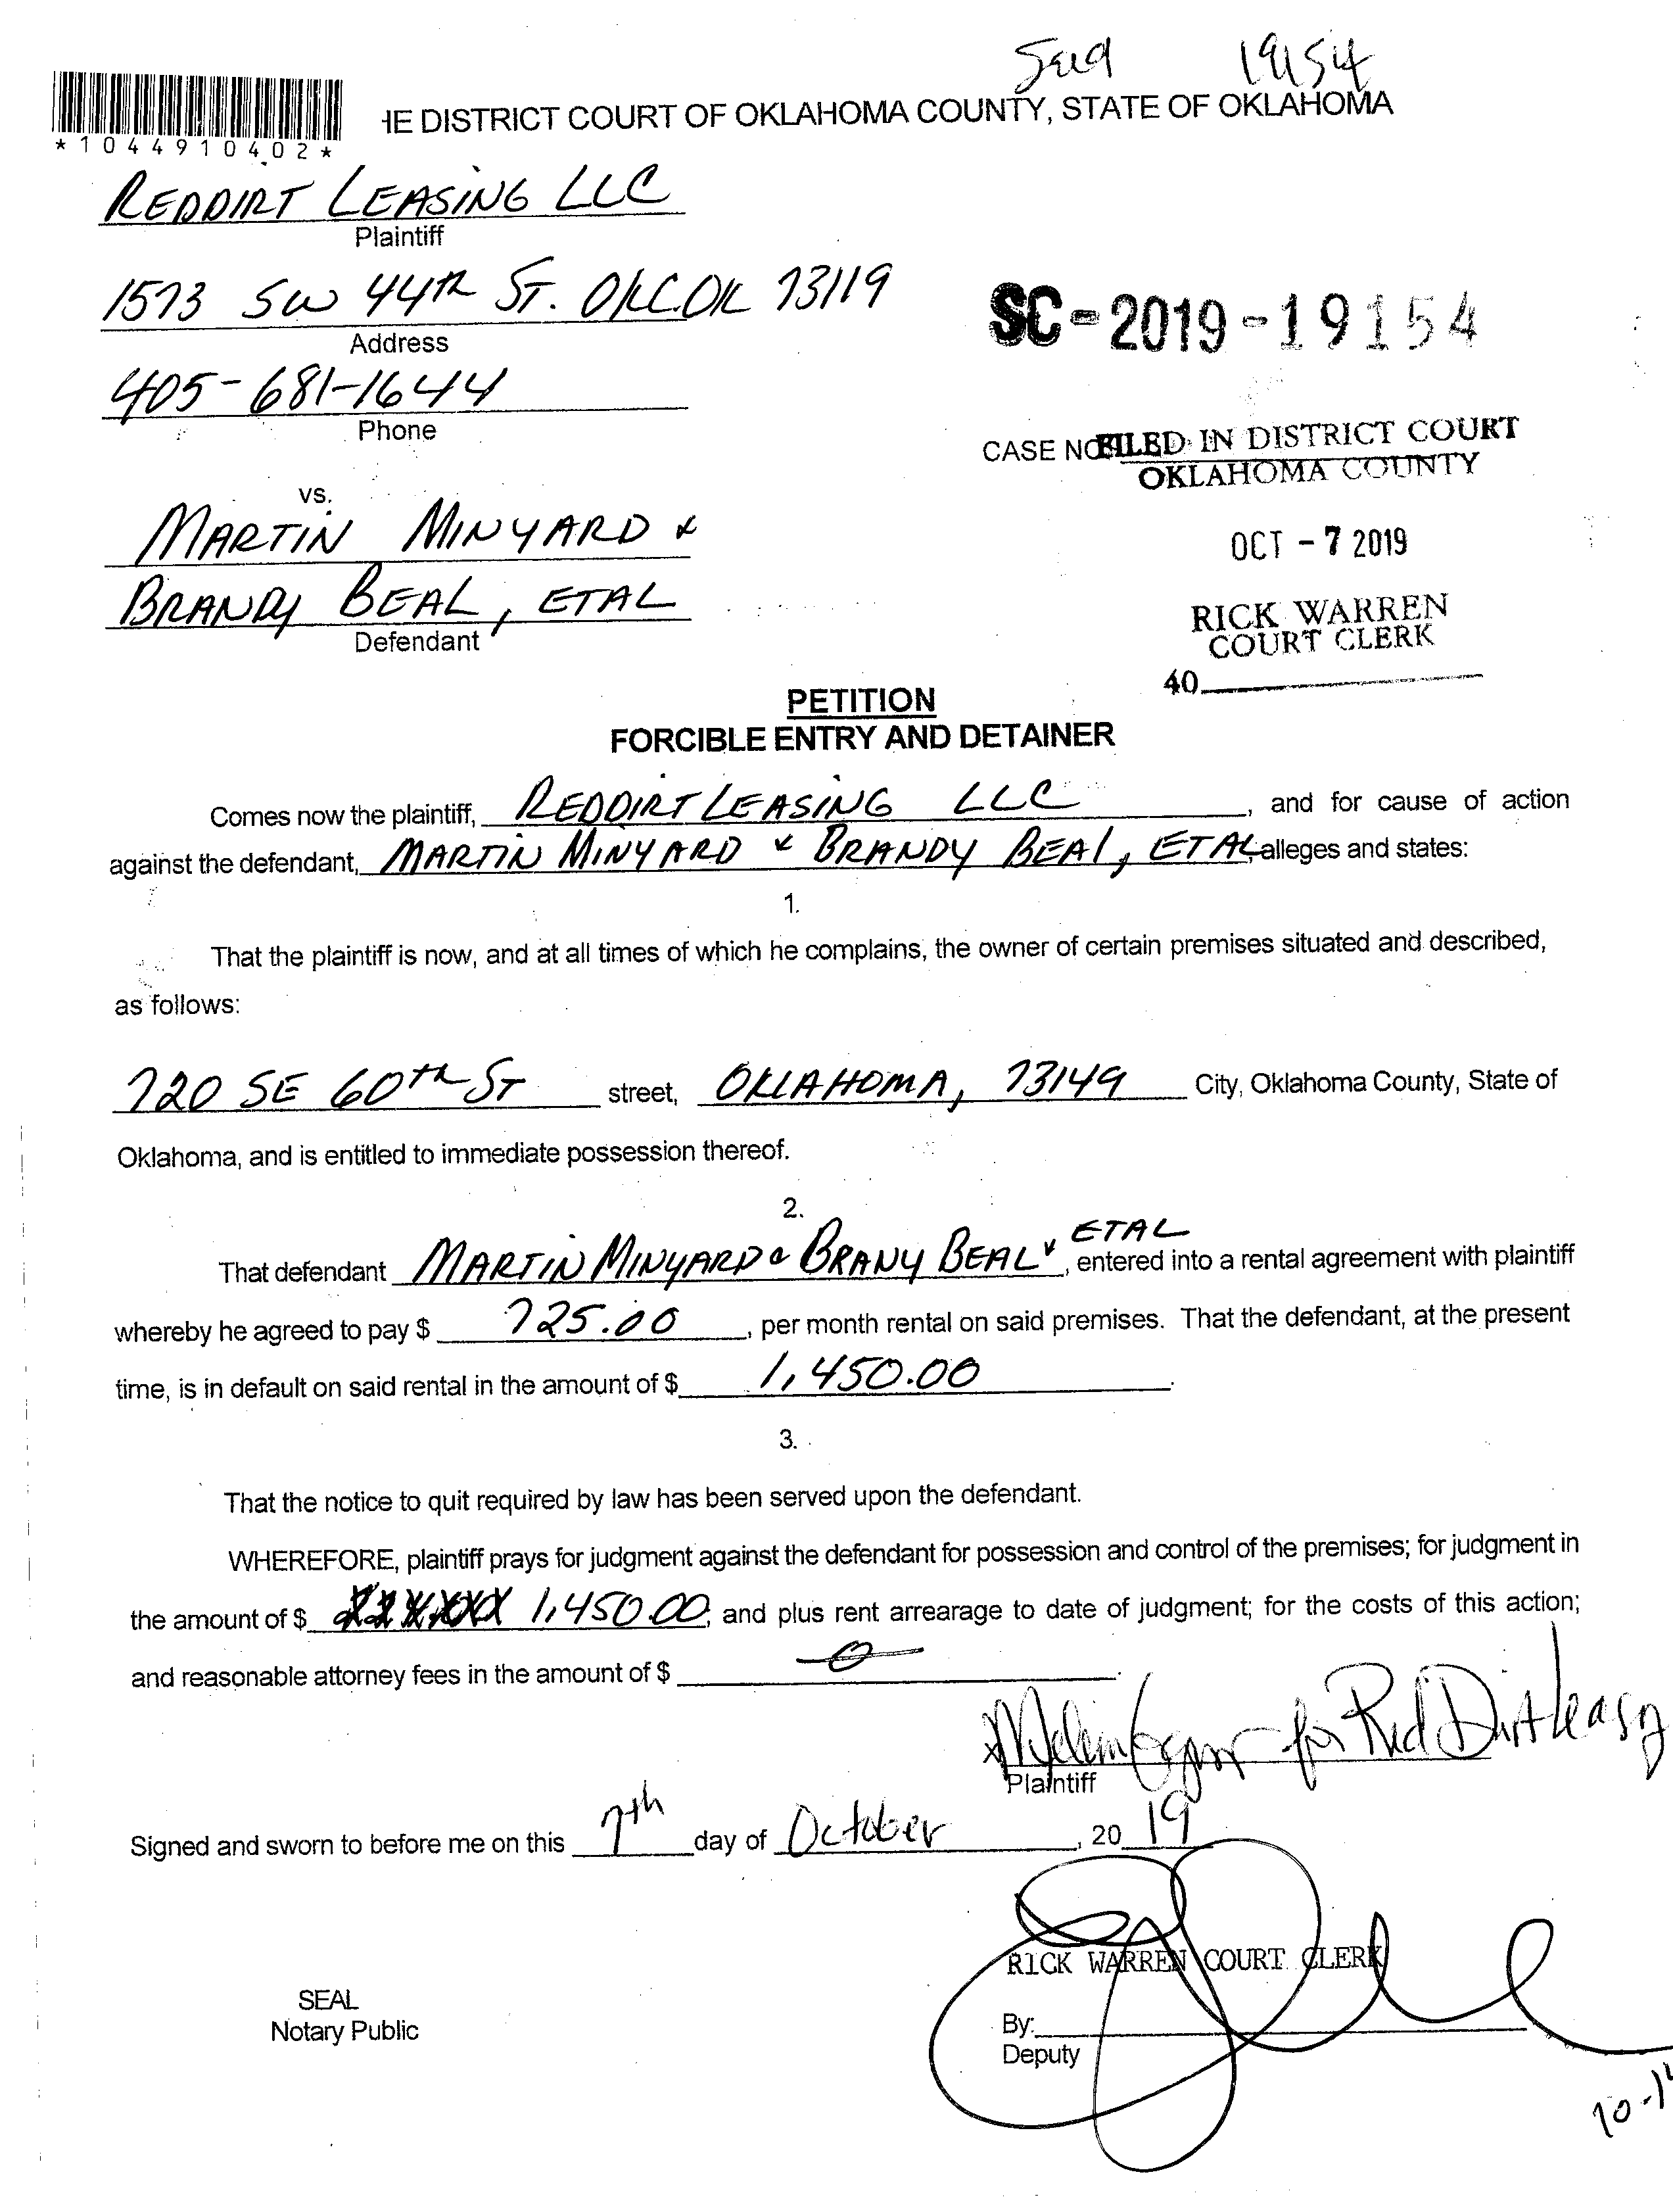 19154
IE DISTRICT COURT OF OKLAHOMA COUNTY, STATE OF OKLAHOMA
*1044910402*
REDDIRT LEASING LLC
Plaintiff
1573 SW 44TH ST. OKC.OK 73119
Address
SC-2019-19154
405-681-1644
Phone
CASE NO FILED IN DISTRICT COURT
OKLAHOMA COUNTY
vs.
MARTIN MINYARD &
OCT - 7 2019
BRANDY BEAL, ETAL
Defendant
RICK WARREN
COURT CLERK
40
PETITION
FORCIBLE ENTRY AND DETAINER
Comes now the plaintiff, REDDIRT LEASING LLC, and for cause of action
against the defendant, MARTIN MINYARD & BRANDY BEAL, ETAL alleges and states:
1.
That the plaintiff is now, and at all times of which he complains, the owner of certain premises situated and described,
as follows:
720 SE 60TH ST street, OKLAHOMA, 73149 City, Oklahoma County, State of
Oklahoma, and is entitled to immediate possession thereof.
2.
That defendant MARTIN MINYARD & BRANY BEAL & ETAL, entered into a rental agreement with plaintiff
whereby he agreed to pay $ 725.00, per month rental on said premises. That the defendant, at the present
time, is in default on said rental in the amount of $ 1,450.00.
3.
That the notice to quit required by law has been served upon the defendant.
WHEREFORE, plaintiff prays for judgment against the defendant for possession and control of the premises; for judgment in
the amount of $ 1,450.00, and plus rent arrearage to date of judgment; for the costs of this action;
and reasonable attorney fees in the amount of $ 0.
x for Red Dirt Leasing
Plaintiff
Signed and sworn to before me on this 7th day of October, 20 19
RICK WARREN COURT CLERK
SEAL
Notary Public
By:
Deputy